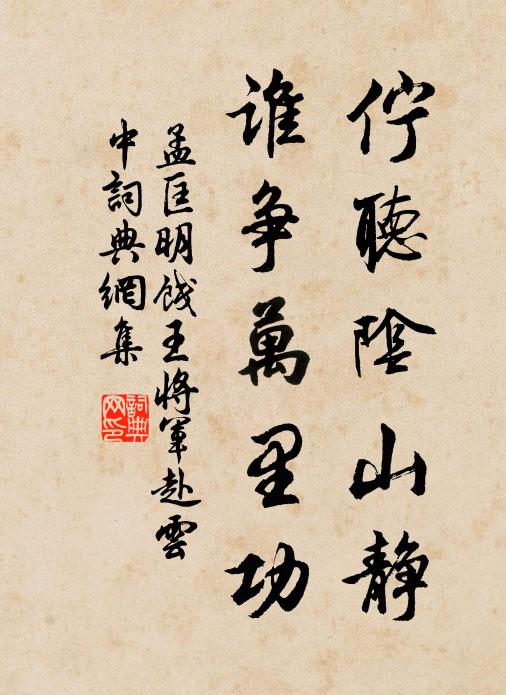 佇聽陰山靜
谁争萬里功
孟匡明餞王將軍赴雲
中詞典網集
詞典网印